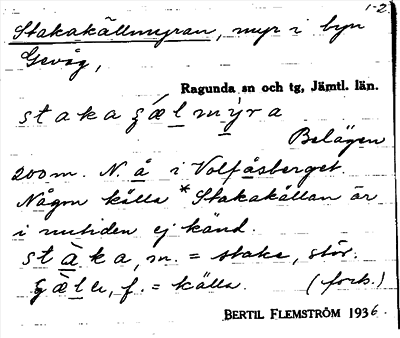 1-2.
Stakakällmyran, myr i byn
Gevåg,
Ragunda sn och tg, Jämtl. län.
staka ʒǽl mýra
Belägen
200 m. N. å i Volfåsberget.
Någon källa *Stakakällan är
i nutiden ej känd.
stàka, m. = stake, stör.
ʒælɩ, f. = källa. (forts.)
BERTIL FLEMSTRÖM 1936.